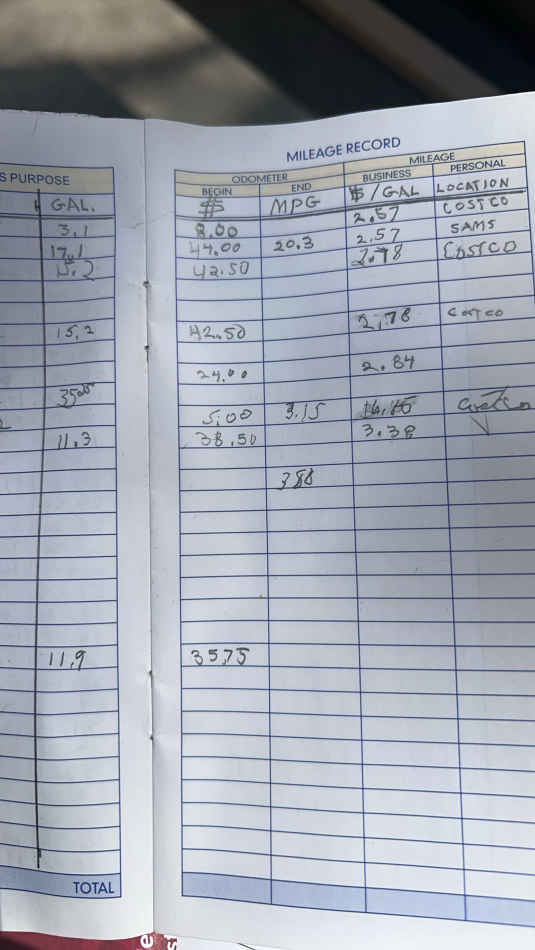 MILEAGE RECORD
S PURPOSE
ODOMETER MILEAGE
BEGIN END BUSINESS PERSONAL
GAL. $ MPG $/GAL LOCATION
3.1 8.00 2.57 COSTCO
17.1 44.00 20.3 2.57 SAMS
15.2 42.50 2.78 COSTCO
15.2 42.50 2.78 Costco
24.00 2.84
5.00 3.15
11.3 38.50 3.38
388
11.9 35.75
TOTAL